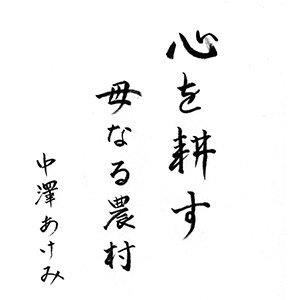 心を耕す
母なる農村
中澤あけみ